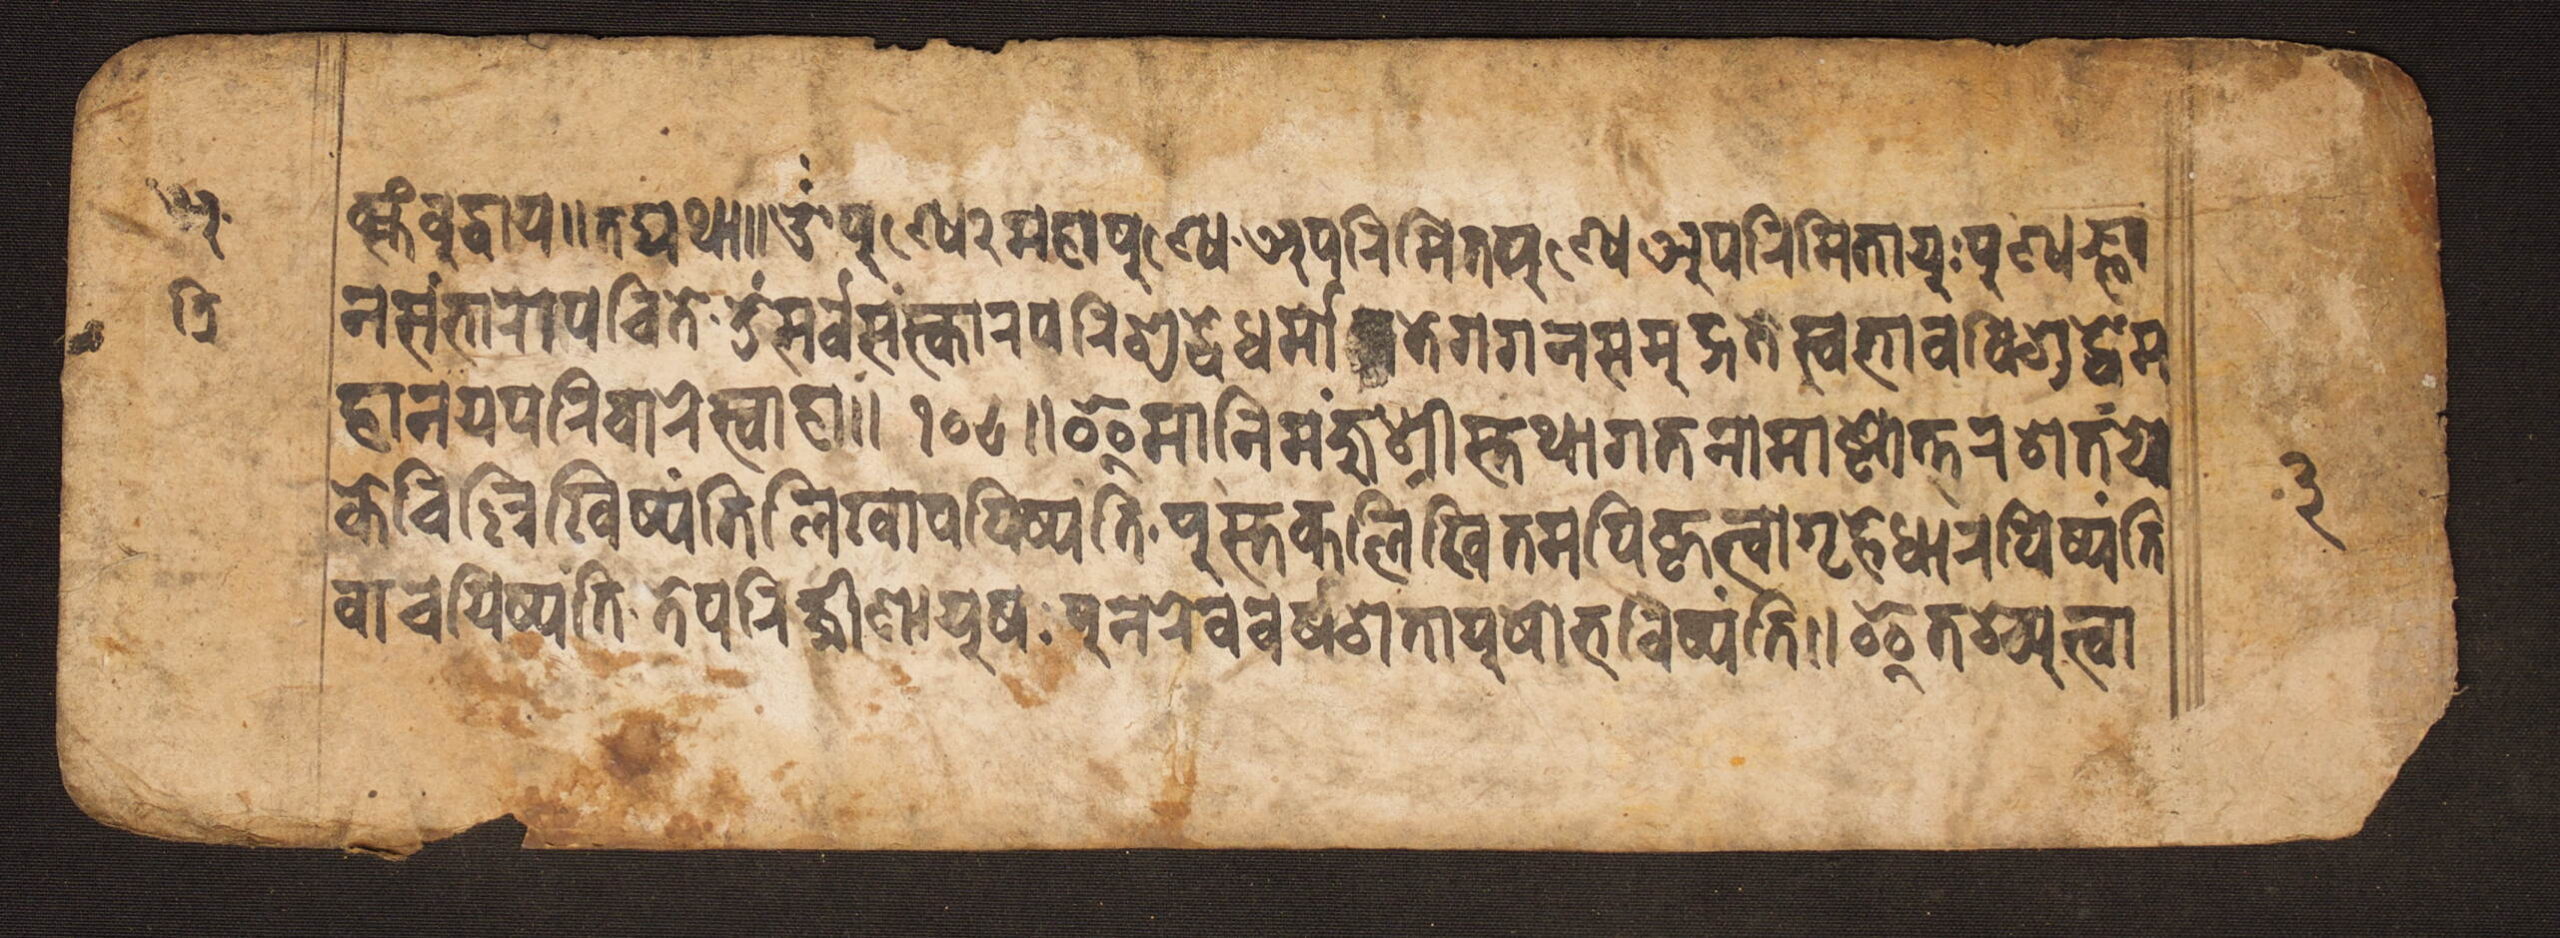 अ
त्रि
क्सं बुद्धाय॥ तद्यथा॥ ॐ पुण्ये२ महापुण्ये· अपरिमितपुण्ये अपरिमितायुः पुण्यज्ञा
नसंभारोपचिते· ॐ सर्वसंस्कारपरिशुद्धे धर्मा ते गगनसमुद्गते स्वभावविशुद्धे म
हानयपरिवारे स्वाहा॥ १०८॥ इमानि मंजुश्रीस्तथागतनामाष्टोत्तरशतं ये
केचिल्लिखिष्यंति लिखापयिष्यंति· पुस्तकलिखितमपि कृत्वा गृहे धारयिष्यंति
वाचयिष्यंति· ते परिक्षीणायुषः पुनरेव वर्षशतायुषो भविष्यंति॥ इतश्च्युत्वा
३